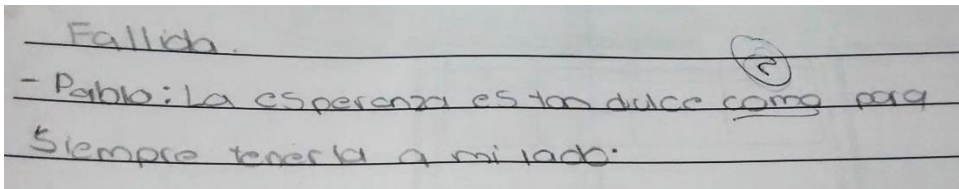 Fallida.
?
- Pablo: La esperanza es tan dulce como para
Siempre tenerla a mi lado.